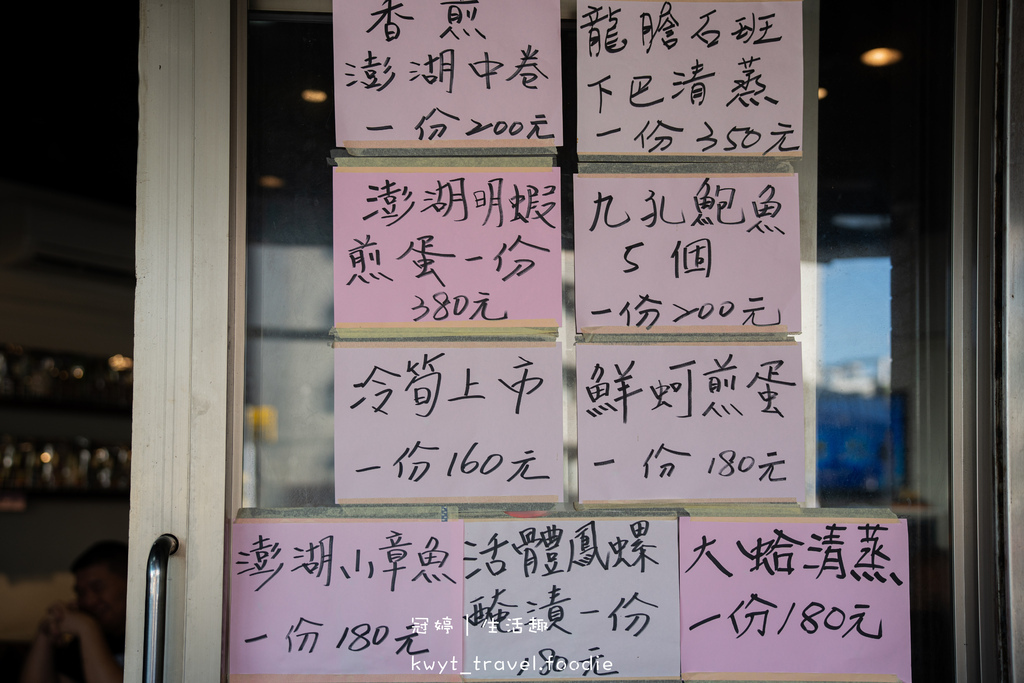 香煎
澎湖中卷
一份200元
龍膽石班
下巴清蒸
一份350元
澎湖明蝦
煎蛋一份
380元
九孔鮑魚
5個
一份200元
冷筍上市
一份160元
鮮蚵煎蛋
一份180元
澎湖小章魚
一份180元
活體鳳螺
醃漬一份
180元
大蛤清蒸
一份180元
冠婷|生活趣
kwyt_travel.foodie